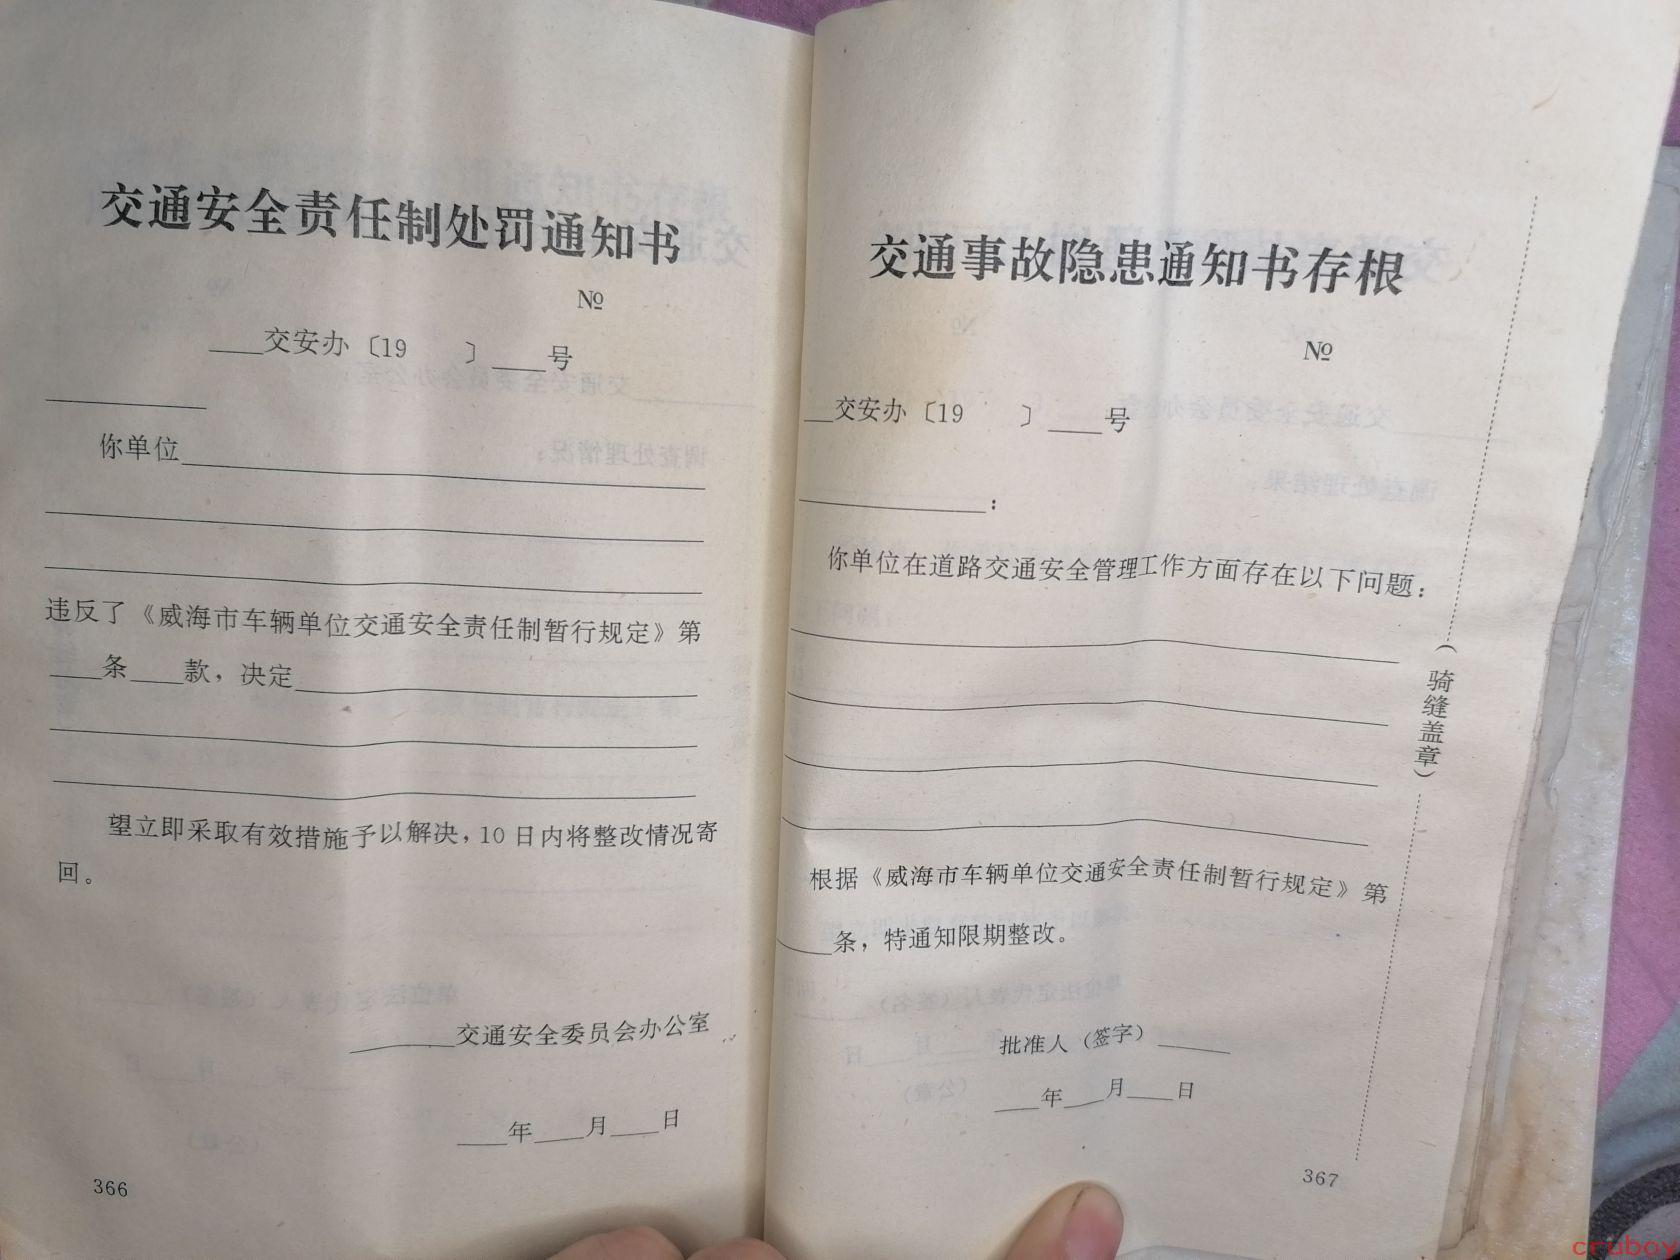 交通安全责任制处罚通知书
№
___交安办〔19　　〕___号
你单位
违反了《威海市车辆单位交通安全责任制暂行规定》第
___条___款，决定
望立即采取有效措施予以解决，10日内将整改情况寄
回。
______交通安全委员会办公室
___年___月___日
366
交通事故隐患通知书存根
№
__交安办〔19　　〕___号
：
你单位在道路交通安全管理工作方面存在以下问题：
根据《威海市车辆单位交通安全责任制暂行规定》第
___条，特通知限期整改。
批准人（签字）____
___年___月___日
367
（骑缝盖章）
cruboy